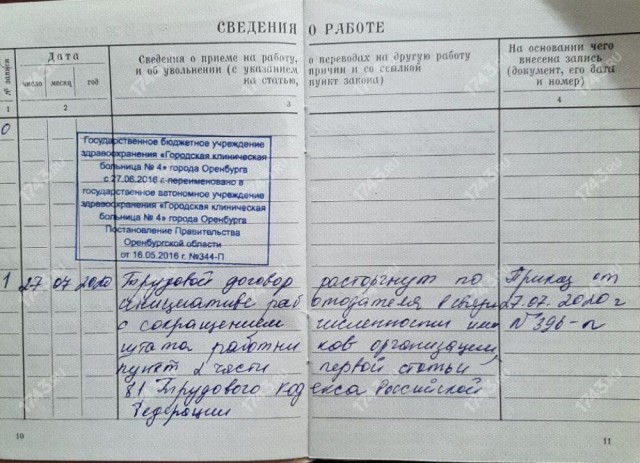 СВЕДЕНИЯ О РАБОТЕ
№ записи
Дата
число месяц год
Сведения о приеме на работу, о переводах на другую работу
и об увольнении (с указанием причин и со ссылкой
на статью, пункт закона)
На основании чего
внесена запись
(документ, его дата
и номер)
1 2 3 4
0
Государственное бюджетное учреждение
здравоохранения «Городская клиническая
больница № 4» города Оренбурга
с 27.06.2016 г. переименовано в
государственное автономное учреждение
здравоохранения «Городская клиническая
больница № 4» города Оренбурга
Постановление Правительства
Оренбургской области
от 16.05.2016 г. №344-П
1 27 07 2020 Трудовой договор расторгнут по Приказ от
инициативе работодателя в связи 27.07.2020 г
с сокращением численности или № 396-п
штата работников организации,
пункт 2 части первой статьи
81 Трудового кодекса Российской
Федерации
10 11
1743.RU